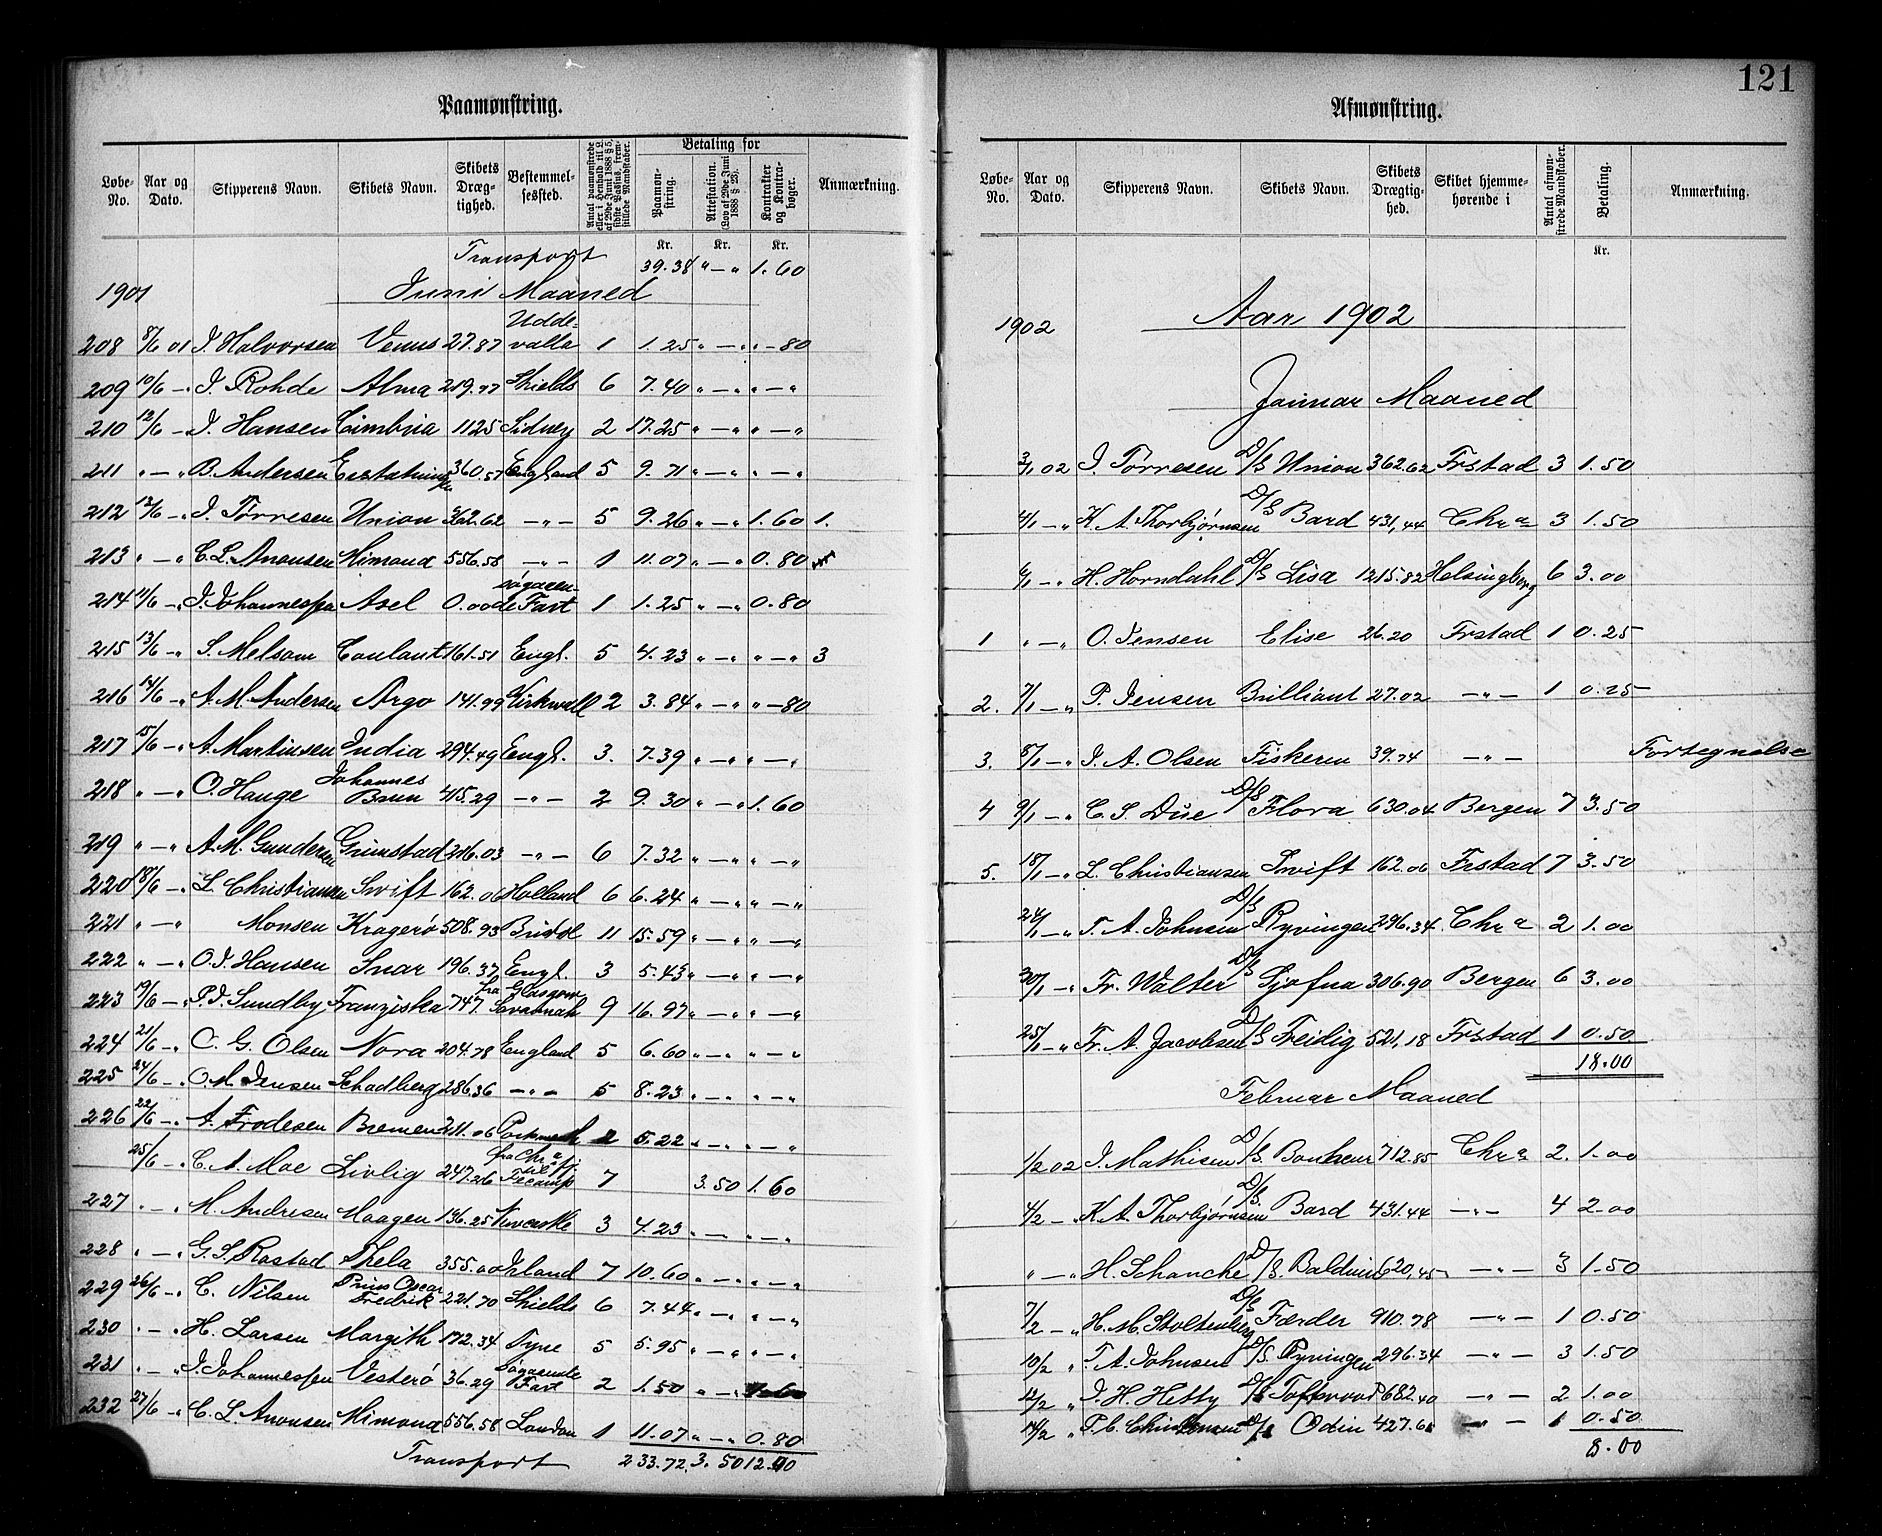 121
Paamønstring.
Løbe-No. Aar og Dato. Skipperens Navn. Skibets Navn. Skibets Dræg-tighed. Bestemmel-sessted. Betaling for Paamøn-string. Attestation. (Lov af 29de Juni 1888 § 23). Kontrakter og Kontra-bøger. Anmærkning.
Kr. Kr. Kr.
Transport 39.38 „ — „ 1.60
1901 Juni Maaned
208 8/6 01 I. Halvorsen Venus 27.87 Udde-valla 1 1.25 „ — „ „ — 80
209 10/6 — „ I. Rohde Alma 219.77 Shields 6 7.40 „ — „ „ — „
210 12/6 — „ I. Hansen Cimbria 1125 Sidney 2 17.25 „ — „ „ — „
211 „ — „ B. Andersen 360.57 England 5 9.71 „ — „ „ — „
212 13/6 — „ I. Tørresen Union 362.62 — „ — 5 9.26 „ — „ 1.60 1.
213 „ — „ C. L. Aronsen Mimona 556.58 — „ — 1 11.07 „ — „ 0.80
214 11/6 — „ I. Johannessen Axel 0.00 søgaaen-de Fart 1 1.25 „ — „ 0.80
215 13/6 — „ S. Melsom Coulant 161.51 Engl. 5 4.23 „ — „ „ — „ 3
216 14/6 — „ A. M. Andersen Argo 141.99 Kirkwall 2 3.84 „ — „ „ — 80
217 15/6 — „ A. Martinsen India 294.49 Engl. 3. 7.39 „ — „ „ — „
218 „ — „ O. Hauge Johannes Brun 415.29 — „ — 2 9.30 „ — „ 1.60
219 „ — „ A. M. Gundersen Grimstad 216.03 — „ — 6 7.32 „ — „ „ — „
220 18/6 — „ L. Christiansen Swift 162.06 Holland 6 6.24 „ — „ „ — „
221 „ — „ Monsen Kragerø 508.93 Bristol 11 15.59 „ — „ „ — „
222 „ — „ O. I. Hansen Snar 196.37 Engl. 3 5.43 „ — „ „ — „
223 19/6 — „ P. I. Sundby Franziska 747. fra Glasgow Savannah 9 16.97 „ — „ „ — „
224 21/6 — „ C. G. Olsen Nora 204.78 England 5 6.60 „ — „ „ — „
225 24/6 — „ O. M. Jensen Schadberg 286.36 — „ — 5 8.23 „ — „ „ — „
226 22/6 — „ A. Frodesen Bremen 211.06 2 5.22 „ — „ „ — „
25/6 — „ C. A. Moe Livlig 247.26 fra Chra til Fecamp 7 3.50 1.60
227 „ — „ M. Andresen Maagen 136.25 Newcastle 3 4.23 „ — „ „ — „
228 „ — „ G. S. Rostad Thela 355.00 Island 7 10.60 „ — „ „ — „
229 26/6 — „ C. Nilsen Prins Oscar Fredrik 221.70 Shields 6 7.44 „ — „ „ — „
230 „ — „ H. Larsen Margith 172.34 Tyne 5 5.95 „ — „ „ — „
231 „ — „ I. Johannessen Vesterø 36.29 søgaaende Fart 2 1.50 „ — „ 1.60
232 27/6 — „ C. L. Aronsen Mimona 556.58 London 1 11.07 „ — „ 0.80
Transport 233.72 3.50
Afmønstring.
Løbe-No. Aar og Dato. Skipperens Navn. Skibets Navn. Skibets Drægtig-hed. Skibet hjemme-hørende i Antal afmøn-strede Mandstaber. Betaling. Anmærkning.
Kr.
1902 Aar 1902
Januar Maaned
3/1 02 I. Tørresen D/S Union 362.62 Frstad 3 1.50
4/1 — „ K. A. Thorbjørnsen D/S Bard 431,44 Chra 3 1.50
6/1 — „ H. Horndahl D/S Lisa 1215.82 Helsingborg 6 3.00
1 „ — „ O. Jensen Elise 26.20 Frstad 1 0.25
2. 7/1 — „ P. Jensen Brilliant 27.02 — „ — 1 0.25
3. 8/1 — „ I. A. Olsen Fiskeren 39.74 — „ — Fortegnelse
4 9/1 — „ C. S. Due D/S Flora 630.04 Bergen 7 3.50
5. 18/1 — „ L. Christiansen Swift 162.06 Frstad 7 3.50
24/1 — „ T. A. Johnsen D/S Ryvingen 296.34 Chra 2 1.00
20/1 — „ Fr. Walter D/S Sjofna 306.90 Bergen 6 3.00
25/1 — „ Fr. A. Jacobsen D/S Freidig 521,18 Frstad 1 0.50
18.00
Februar Maaned
1/2 02 I. Mathisen D/S Bonheur 712.85 Chra 2. 1.00
4/2 — „ K. A. Thorbjørnsen D/S. Bard 431.44 — „ — 4 2.00
„ — „ H. Schanche D/S. Baldwin 620,45 — „ — 3 1.50
7/2 — „ H. M. Stoltenberg D/S Færder 910.78 — „ — 1 0.50
10/2 „ T. A. Johnsen D/S. Ryvingen 296.34 — „ — 3 1.50
12/2 „ I. H. Hetty D/S 682.40 — „ — 2 1.00
14/2 „ D/S Odin 427.61 — „ — 1 0.50
8.00